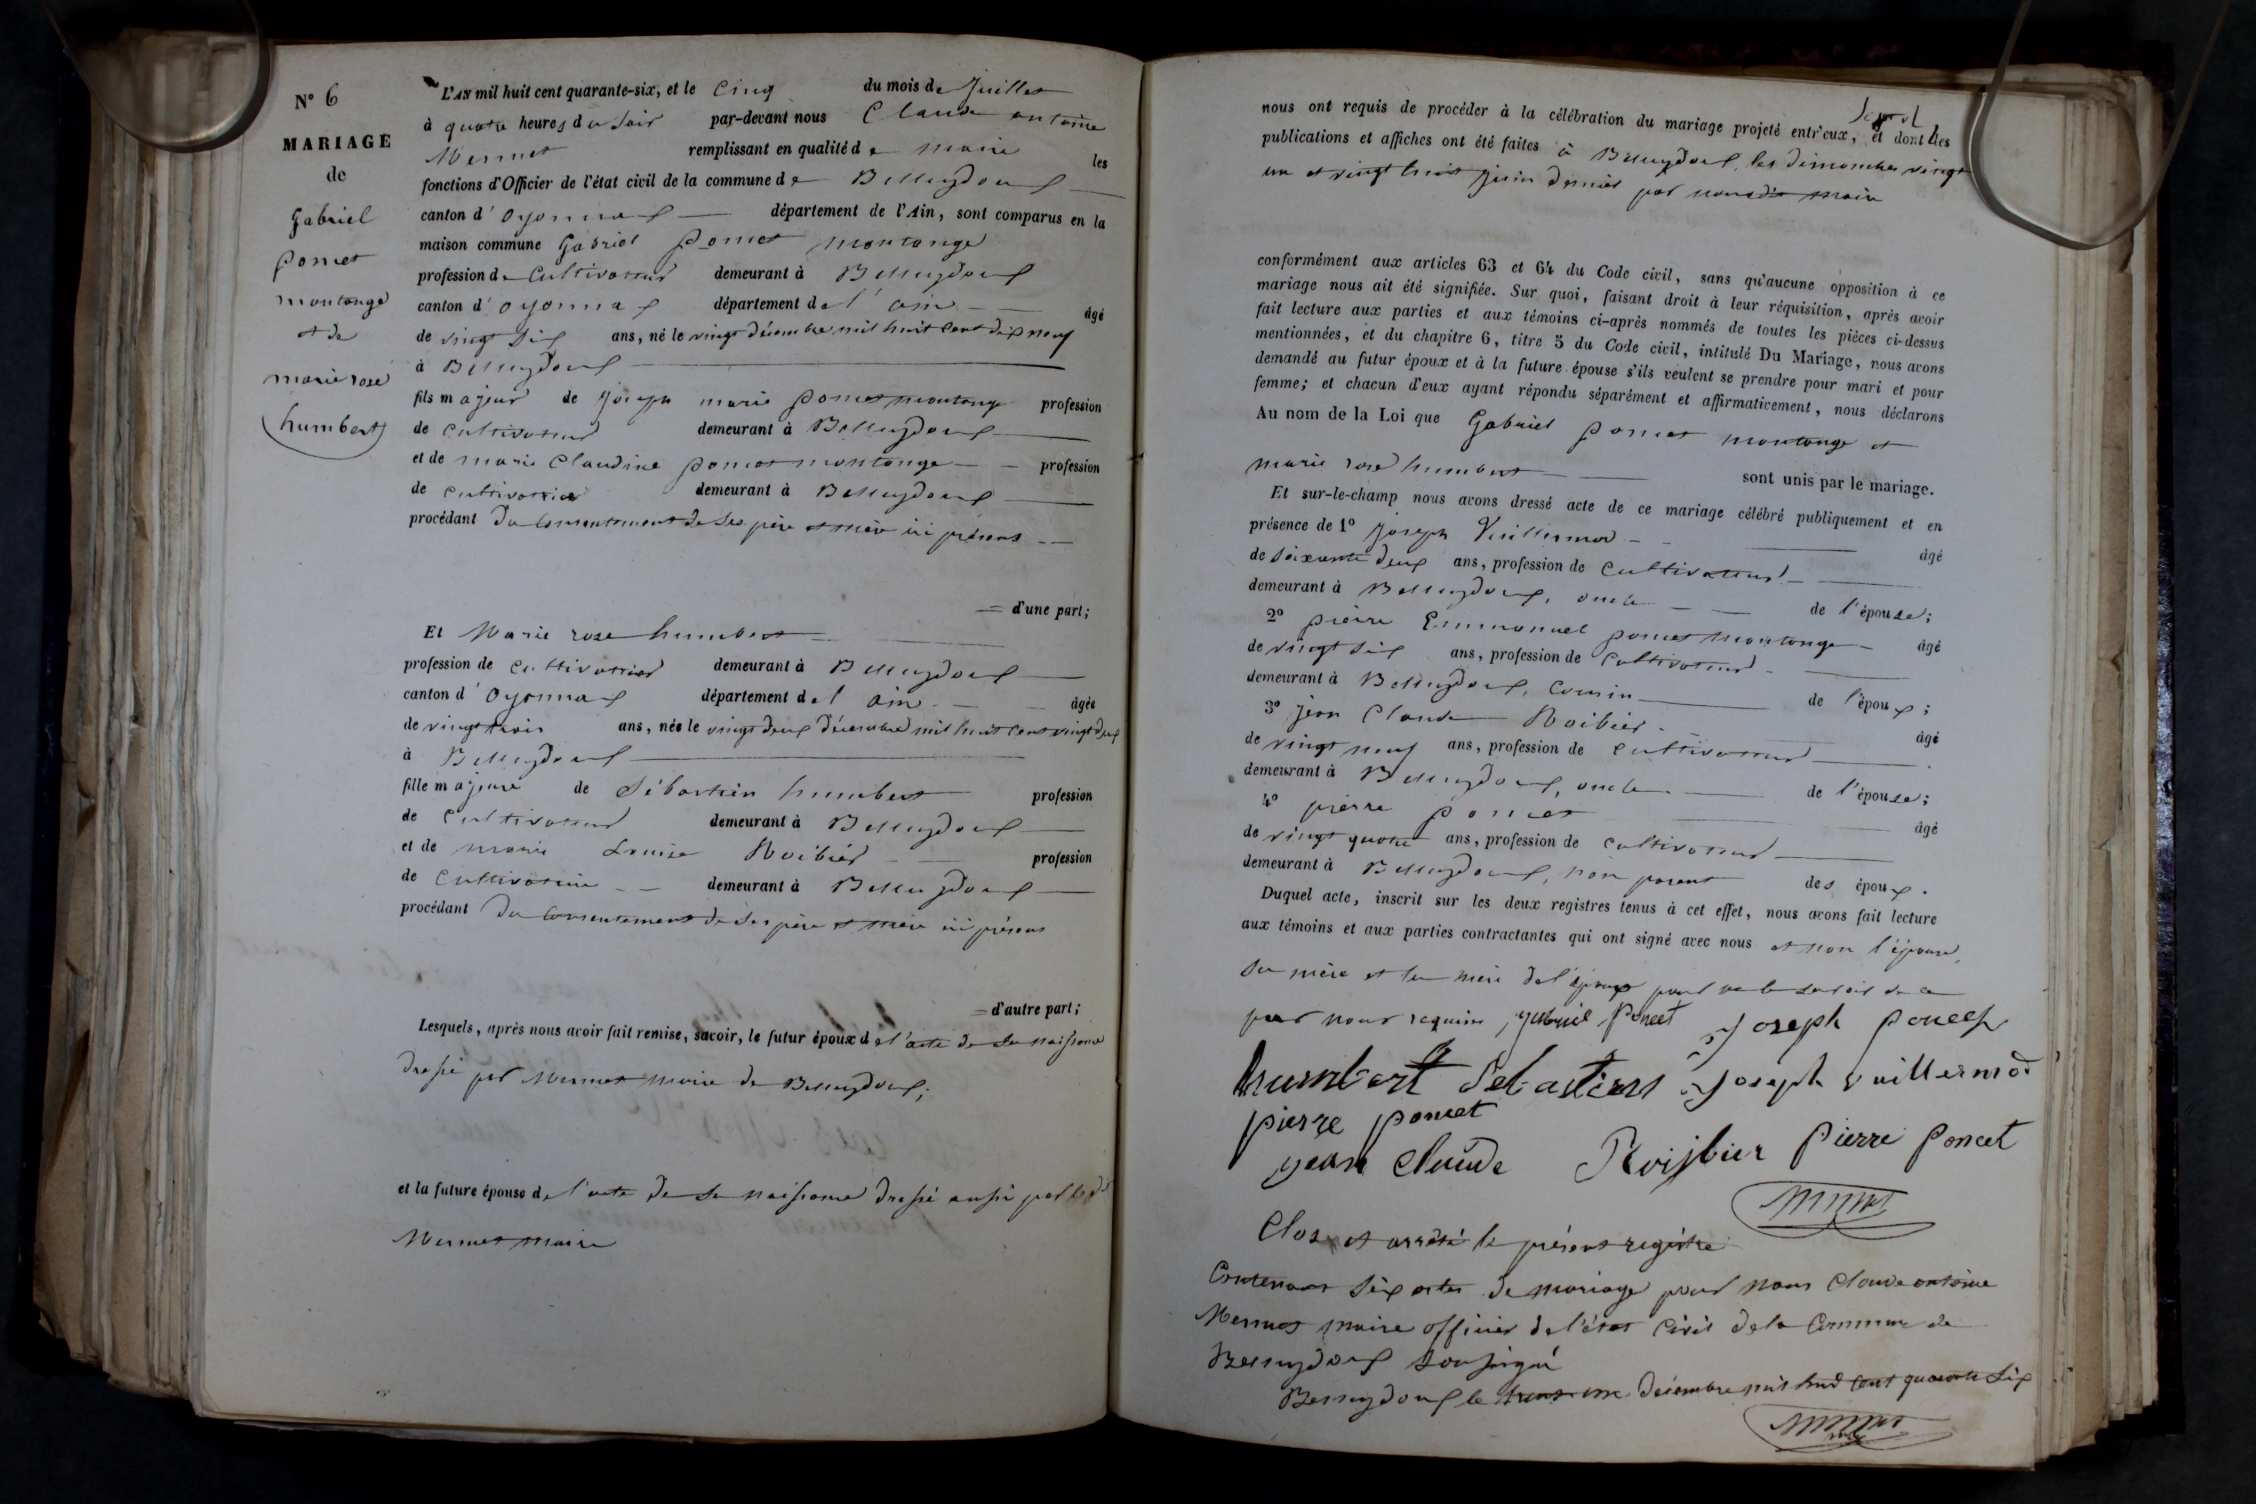 N° 6
MARIAGE
de
Gabriel
poncet
montange
et de
marie rose
humbert
L'AN mil huit cent quarante-six, et le cinq du mois de Juillet
à quatre heures du soir par-devant nous Claude antoine
Mermet remplissant en qualité de maire les
fonctions d'Officier de l'état civil de la commune de Belleydoux
canton d'oyonnax département de l'Ain, sont comparus en la
maison commune Gabriel poncet montange
profession de cultivateur demeurant à Belleydoux
canton d'oyonnax département de l'ain âgé
de vingt six ans, né le vingt décembre mil huit cent dix neuf
à Belleydoux
fils majeur de joseph marie poncet montange profession
de cultivateur demeurant à Belleydoux
et de marie Claudine poncet montange profession
de cultivatrice demeurant à Belleydoux
procédant du consentement de ses père et mère ici présens
d'une part;
Et Marie rose humbert
profession de cultivatrice demeurant à Belleydoux
canton d'oyonnax département de l'ain âgée
de vingt trois ans, née le vingt deux décembre mil huit cent vingt deux
à Belleydoux
fille majeure de Sébastien humbert profession
de cultivateur demeurant à Belleydoux
et de marie Louise Roibier profession
de cultivatrice demeurant à Belleydoux
procédant du consentement de ses père et mère ici présens
d'autre part;
Lesquels, après nous avoir fait remise, savoir, le futur époux de l'acte de sa naissance
dressé par Mermet maire de Belleydoux;
et la future épouse de l'acte de sa naissance dressé aussi par led.
Mermet maire
nous ont requis de procéder à la célébration du mariage projeté entr'eux, et dont les
publications et affiches ont été faites à Belleydoux, les dimanches vingt
un et vingt huit juin dernier par nousdit maire
conformément aux articles 63 et 64 du Code civil, sans qu'aucune opposition à ce
mariage nous ait été signifiée. Sur quoi, faisant droit à leur réquisition, après avoir
fait lecture aux parties et aux témoins ci-après nommés de toutes les pièces ci-dessus
mentionnées, et du chapitre 6, titre 5 du Code civil, intitulé Du Mariage, nous avons
demandé au futur époux et à la future épouse s'ils veulent se prendre pour mari et pour
femme; et chacun d'eux ayant répondu séparément et affirmativement, nous déclarons
Au nom de la Loi que Gabriel poncet montange et
marie rose humbert sont unis par le mariage.
Et sur-le-champ nous avons dressé acte de ce mariage célébré publiquement et en
présence de 1° joseph Vuillermoz âgé
de soixante deux ans, profession de cultivateur
demeurant à Belleydoux, oncle de l'épouse;
2° pierre Emmanuel poncet montange âgé
de vingt six ans, profession de cultivateur
demeurant à Belleydoux, cousin de l'époux;
3° jean Claude Roibier âgé
de vingt neuf ans, profession de cultivateur
demeurant à Belleydoux, oncle de l'épouse;
4° pierre poncet âgé
de vingt quatre ans, profession de cultivateur
demeurant à Belleydoux, non parent des époux.
Duquel acte, inscrit sur les deux registres tenus à cet effet, nous avons fait lecture
aux témoins et aux parties contractantes qui ont signé avec nous et non l'épouse,
sa mère et la mère de l'époux pour ne le savoir de ce
par nous requises, gabriel Poncet joseph poncet
humbert Sebastien joseph vuillermoz
pierre poncet
jean claude Roijbier pierre poncet
Mermet
Clos et arrêté le présent registre
Contenant six actes de mariage par nous Claude antoine
Mermet maire officier de l'état Civil de la Commune de
Belleydoux soussigné
Belleydoux le trente un décembre mil huit cent quarante six
Mermet